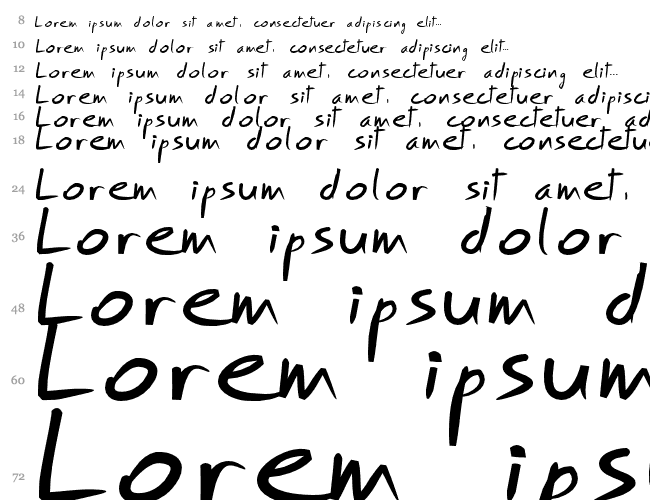 8 Lorem ipsum dolor sit amet, consectetuer adipiscing elit...
10 Lorem ipsum dolor sit amet, consectetuer adipiscing elit...
12 Lorem ipsum dolor sit amet, consectetuer adipiscing elit...
14 Lorem ipsum dolor sit amet, consectetuer adipisci
16 Lorem ipsum dolor sit amet, consectetuer ad
18 Lorem ipsum dolor sit amet, consectetu
24 Lorem ipsum dolor sit amet,
36 Lorem ipsum dolor
48 Lorem ipsum d
60 Lorem ipsum
72 Lorem ips